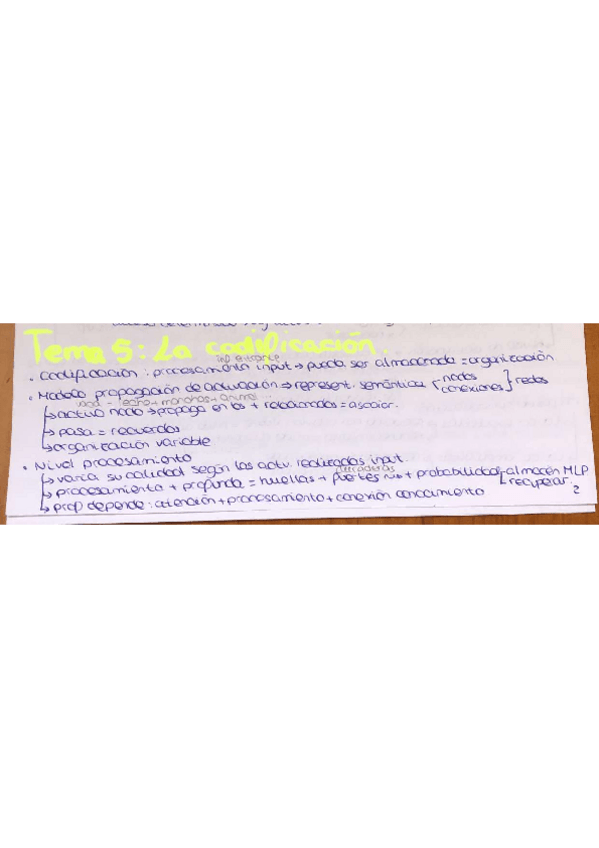 Tema 5: La codificación.
inf. entrante
• Codificación: procesamiento input → pueda ser almacenada = organización
• Modelo propagación de activación → represent. semántica { nodos conexiones } redes
leche + manchas - animal ...
↳ activa nodo → propaga en los + relacionados = asociar.
↳ pasa = recuerdos
↳ organización variable
• Nivel procesamiento
↳ varía su calidad según las activ. realizadas input.
duraderas
↳ procesamiento + profundo = huellas + fuertes + probabilidad almacén MLP recuperar.
↳ prof depende: atención + procesamiento + conexión conocimiento
2